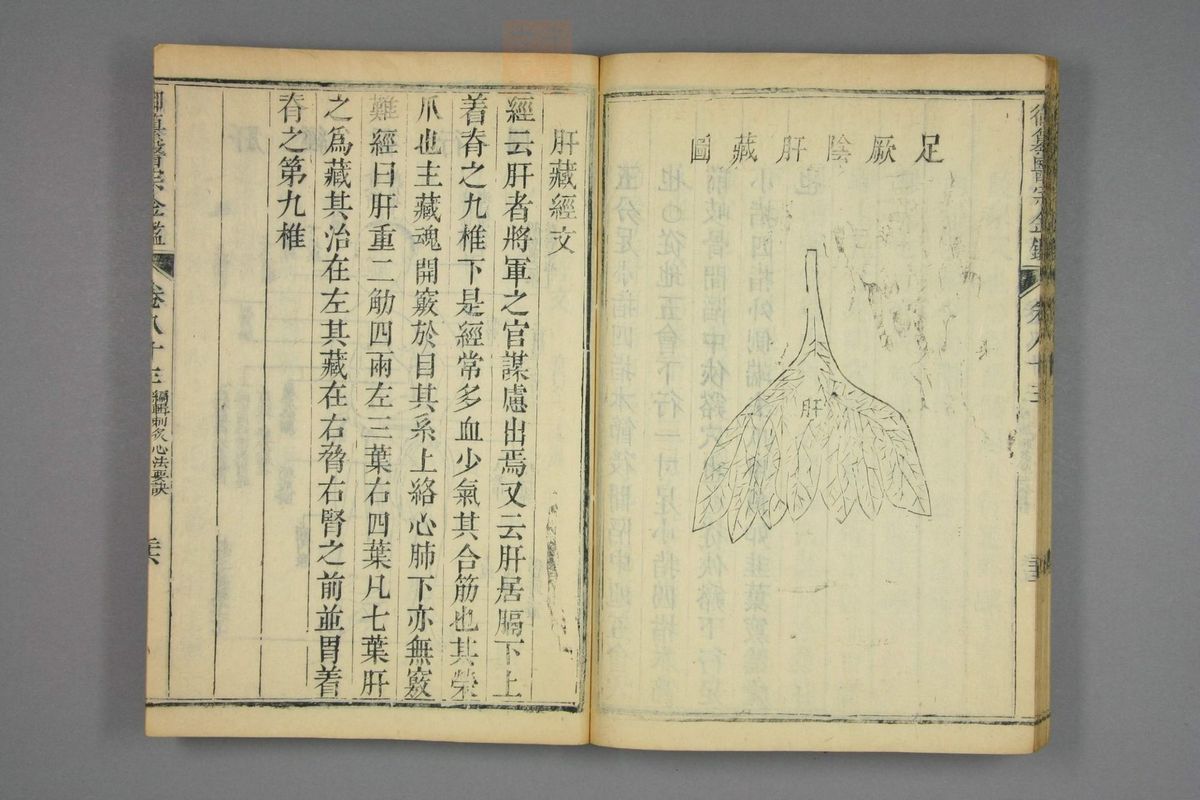 足厥陰肝藏圖
肝
肝藏經文
經云肝者將軍之官謀慮出焉又云肝居膈下上
着脊之九椎下是經常多血少氣其合筋也其榮
爪也主藏魂開竅於目其系上絡心肺下亦無竅
難經曰肝重二觔四兩左三葉右四葉凡七葉肝
之為藏其治在左其藏在右脅右腎之前並胃着
脊之第九椎
御纂醫宗金鑑
卷八十三
編輯刺灸心法要訣